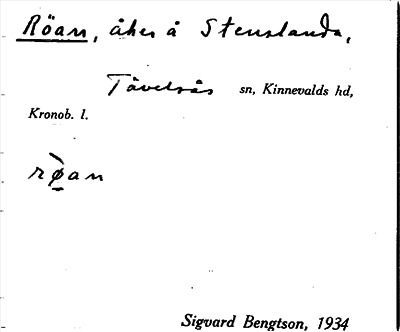 Röan, åker å Stenslanda,
Tävelsås sn, Kinnevalds hd,
Kronob. l.
rø̀an
Sigvard Bengtson, 1934